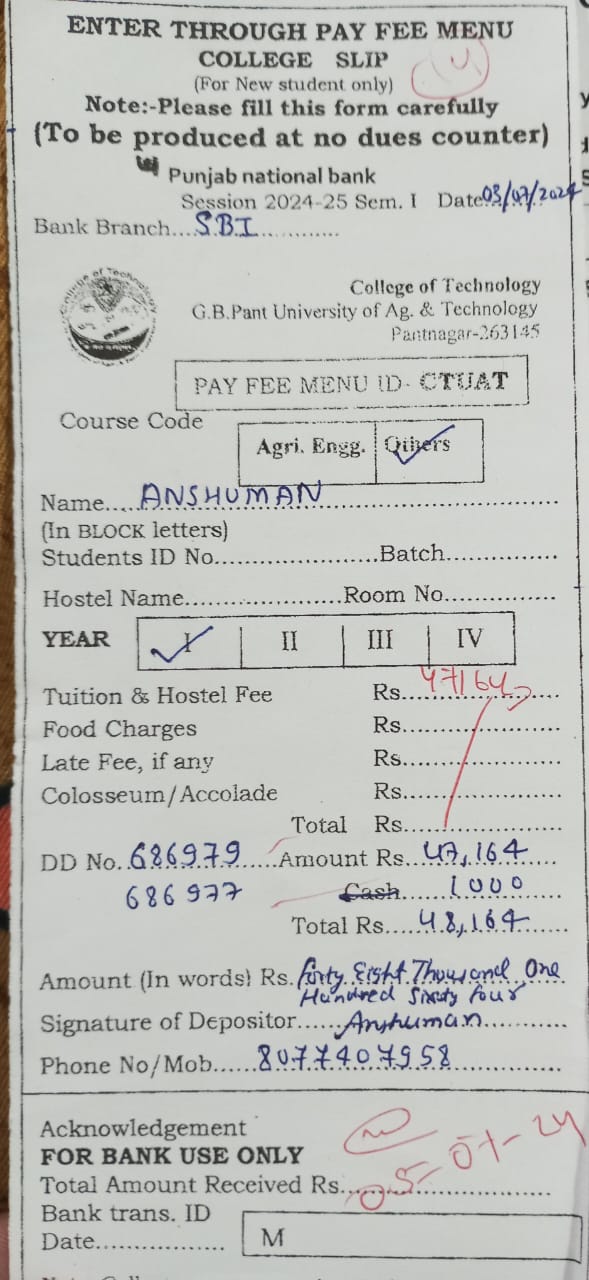 ENTER THROUGH PAY FEE MENU
COLLEGE SLIP
(For New student only)
Note:-Please fill this form carefully
(To be produced at no dues counter)
Punjab national bank
Session 2024-25 Sem. I Date 03/07/2024
Bank Branch...SBI............
College of Technology
G.B.Pant University of Ag. & Technology
Pantnagar-263145
PAY FEE MENU ID- CTUAT
Course Code
Agri. Engg. Others
Name.....ANSHUMAN..............................
(In BLOCK letters)
Students ID No....................Batch..............
Hostel Name....................Room No..............
YEAR I II III IV
Tuition & Hostel Fee Rs...47164...
Food Charges Rs....................
Late Fee, if any Rs....................
Colosseum/Accolade Rs....................
Total Rs....................
DD No. 686979 ....Amount Rs...47,164
686977 Cash 1000
Total Rs.....48,164
Amount (In words) Rs. Forty Eight Thousand One
Hundred Sixty Four
Signature of Depositor......Anshuman............
Phone No/Mob......8077407958..............
Acknowledgement
FOR BANK USE ONLY
05-07-24
Total Amount Received Rs.......................
Bank trans. ID
Date.................. M